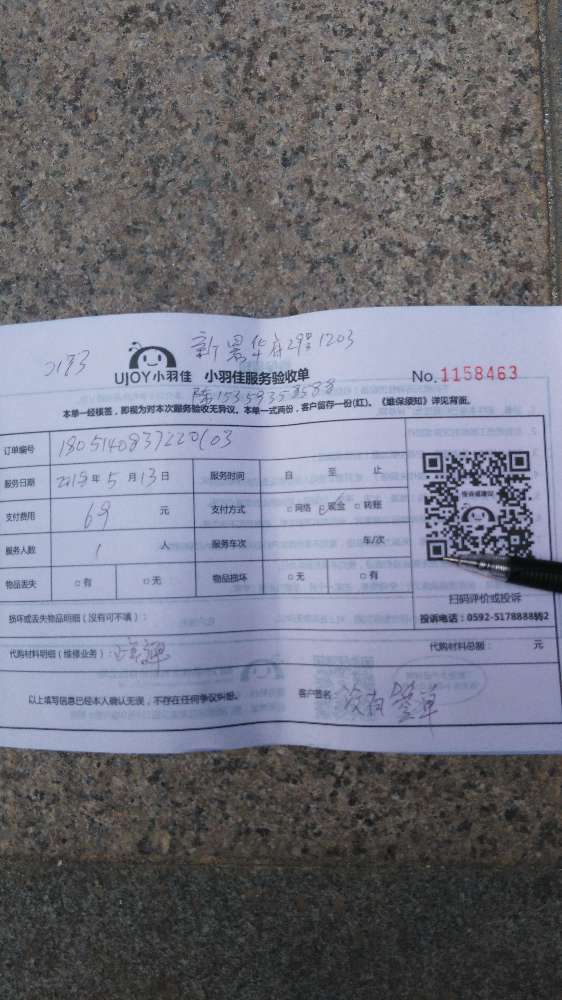 2183 新景华府29#1203
UJOY小羽佳 小羽佳服务验收单 No.1158463
本单一经核签，即视为对本次服务验收无异议。本单一式两份，客户留存一份(红)。《维保须知》详见背面。
订单编号
服务日期 2018年5月13日 服务时间 自 至 止
支付费用 69 元 支付方式 □网络 现金 □转账
服务人数 1 人 服务车次 车/次
物品丢失 □有 □无 物品损坏 □无 □有
投诉或建议
扫码评价或投诉
投诉电话：0592-5178888转2
损坏或丢失物品明细（没有可不填）：
代购材料明细（维修业务）： 代购材料总额： 元
以上填写信息已经本人确认无误，不存在任何争议纠纷。 客户签名： 没有签单